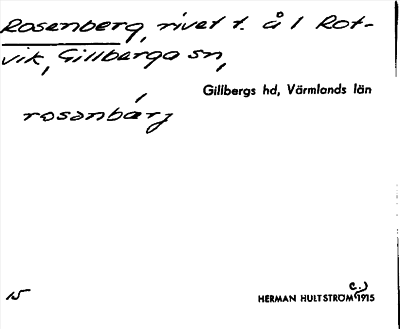 Rosenberg, rivet t. å 1 Rot-
vik, Gillberga sn,
Gillbergs hd, Värmlands län
rosənbárj
15
HERMAN HULTSTRÖM (c.) 1915